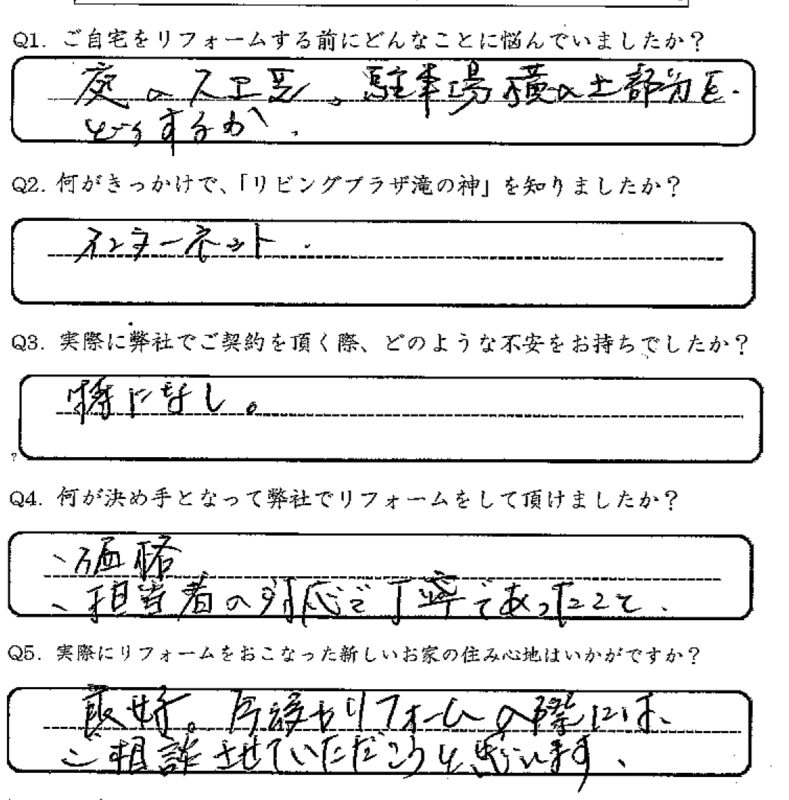 Q1. ご自宅をリフォームする前にどんなことに悩んでいましたか？
庭の人工芝。駐車場横の土部分を
どうするか.
Q2. 何がきっかけで、「リビングプラザ滝の神」を知りましたか？
インターネット.
Q3. 実際に弊社でご契約を頂く際、どのような不安をお持ちでしたか？
特になし。
Q4. 何が決め手となって弊社でリフォームをして頂けましたか？
、価格
、担当者の対応で丁寧であったこと.
Q5. 実際にリフォームをおこなった新しいお家の住み心地はいかがですか？
良好。今後もリフォームの際には、
ご相談させていただこうと思います、